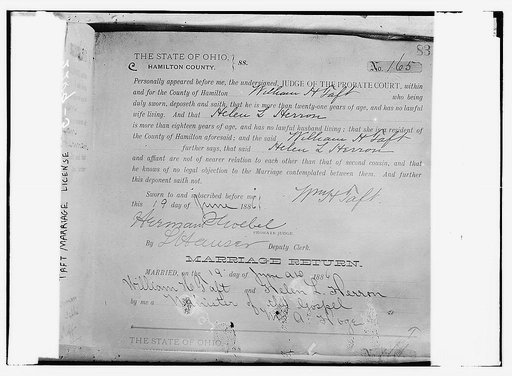 83
THE STATE OF OHIO,
HAMILTON COUNTY. ss.
No. 165
Personally appeared before me, the undersigned, JUDGE OF THE PROBATE COURT, within
and for the County of Hamilton William H Taft who being
duly sworn, deposeth and saith, that he is more than twenty-one years of age, and has no lawful
wife living. And that Helen L Herron
is more than eighteen years of age, and has no lawful husband living; that she is a resident of
the County of Hamilton aforesaid; and the said William H Taft
further says, that said Helen L Herron
and affiant are not of nearer relation to each other than that of second cousin, and that
he knows of no legal objection to the Marriage contemplated between them. And further
this deponent saith not.
Sworn to and subscribed before me Wm H Taft.
this 19 day of June 1886
Herman Goebel
PROBATE JUDGE.
By Deputy Clerk.
MARRIAGE RETURN.
MARRIED, on the 19 day of June 1886
William H Taft and Helen L Herron
by me a Minister of the Gospel
Hoge
THE STATE OF OHIO
TAFT MARRIAGE LICENSE